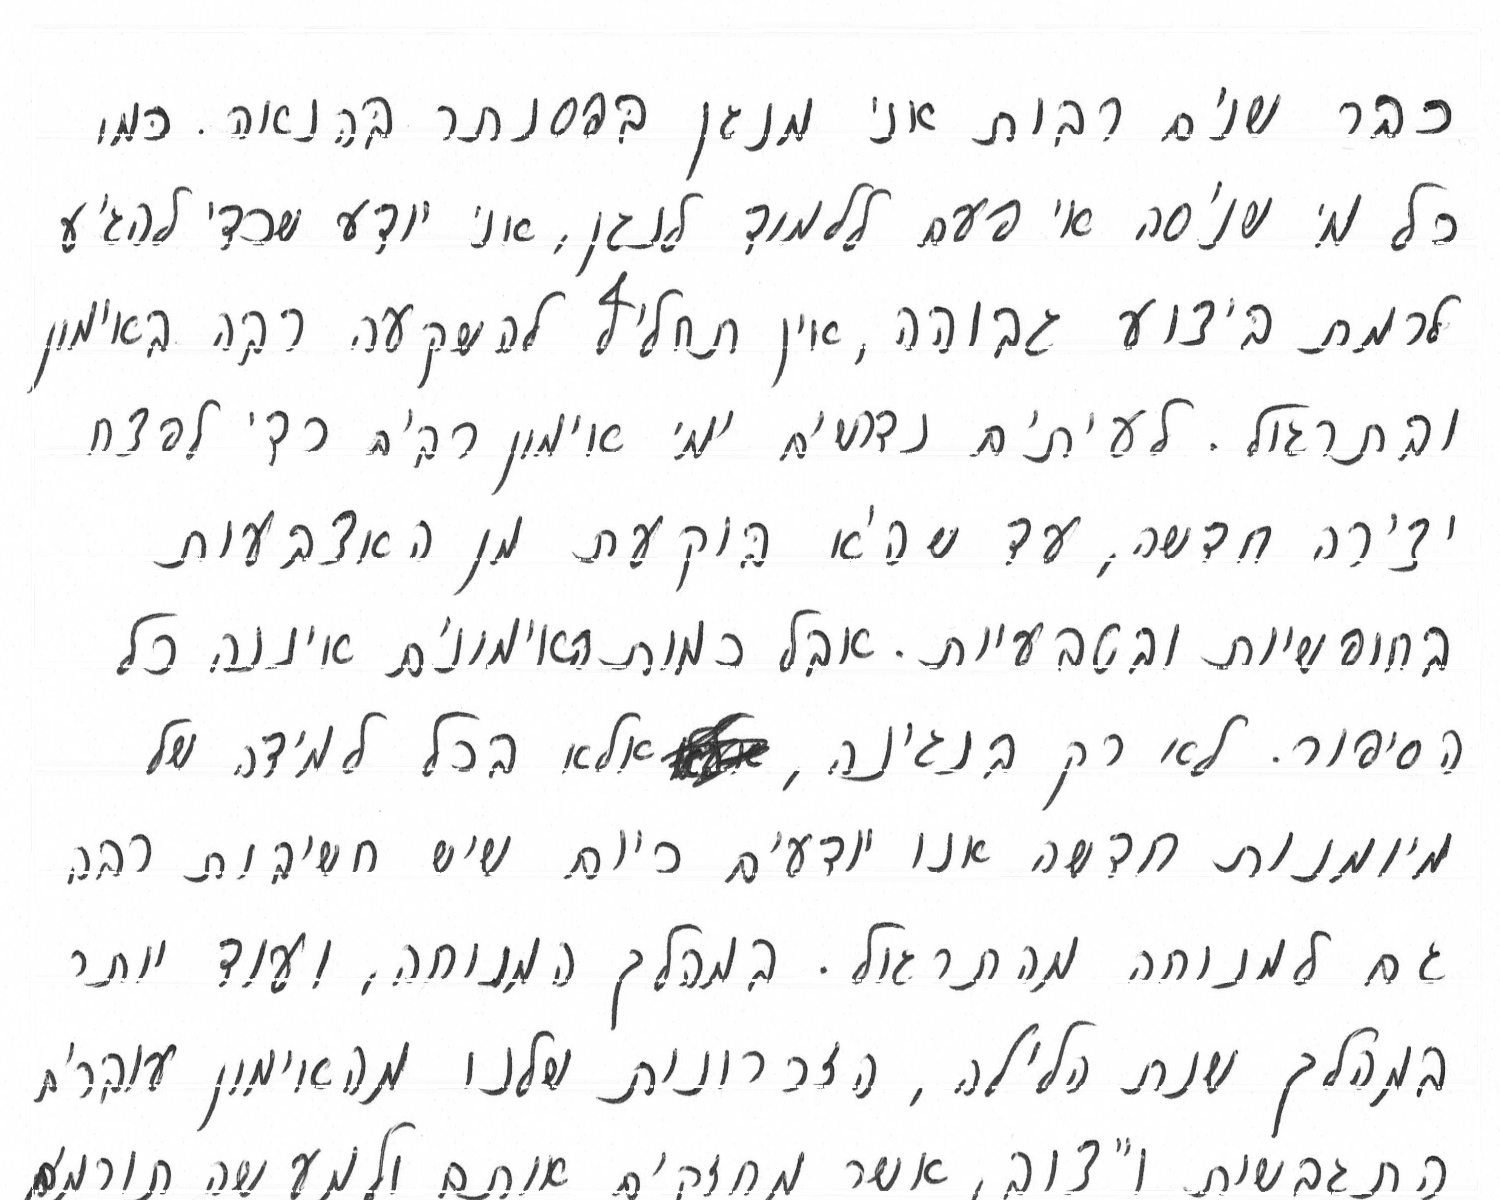 כבר שנים רבות אני מנגן בפסנתר בהנאה. כמו
כל מי שניסה אי פעם ללמוד לנגן, אני יודע שכדי להגיע
לרמת ביצוע גבוהה, אין תחליף להשקעה רבה באימון
ובתרגול. לעיתים נדרשים ימי אימון רבים כדי לפצח
יצירה חדשה, עד שהיא בוקעת מן האצבעות
בחופשיות ובטבעיות. אבל כמות האימונים איננה כל
הסיפור. לא רק בנגינה, אלא בכל למידה של
מיומנות חדשה אנו יודעים כיום שיש חשיבות רבה
גם למנוחה מהתרגול. במהלך המנוחה, ועוד יותר
במהלך שנת הלילה, הזכרונות שלנו מהאימון עוברים
התגבשות וייצוב, אשר מחזקים אותם ולמעשה תורמים